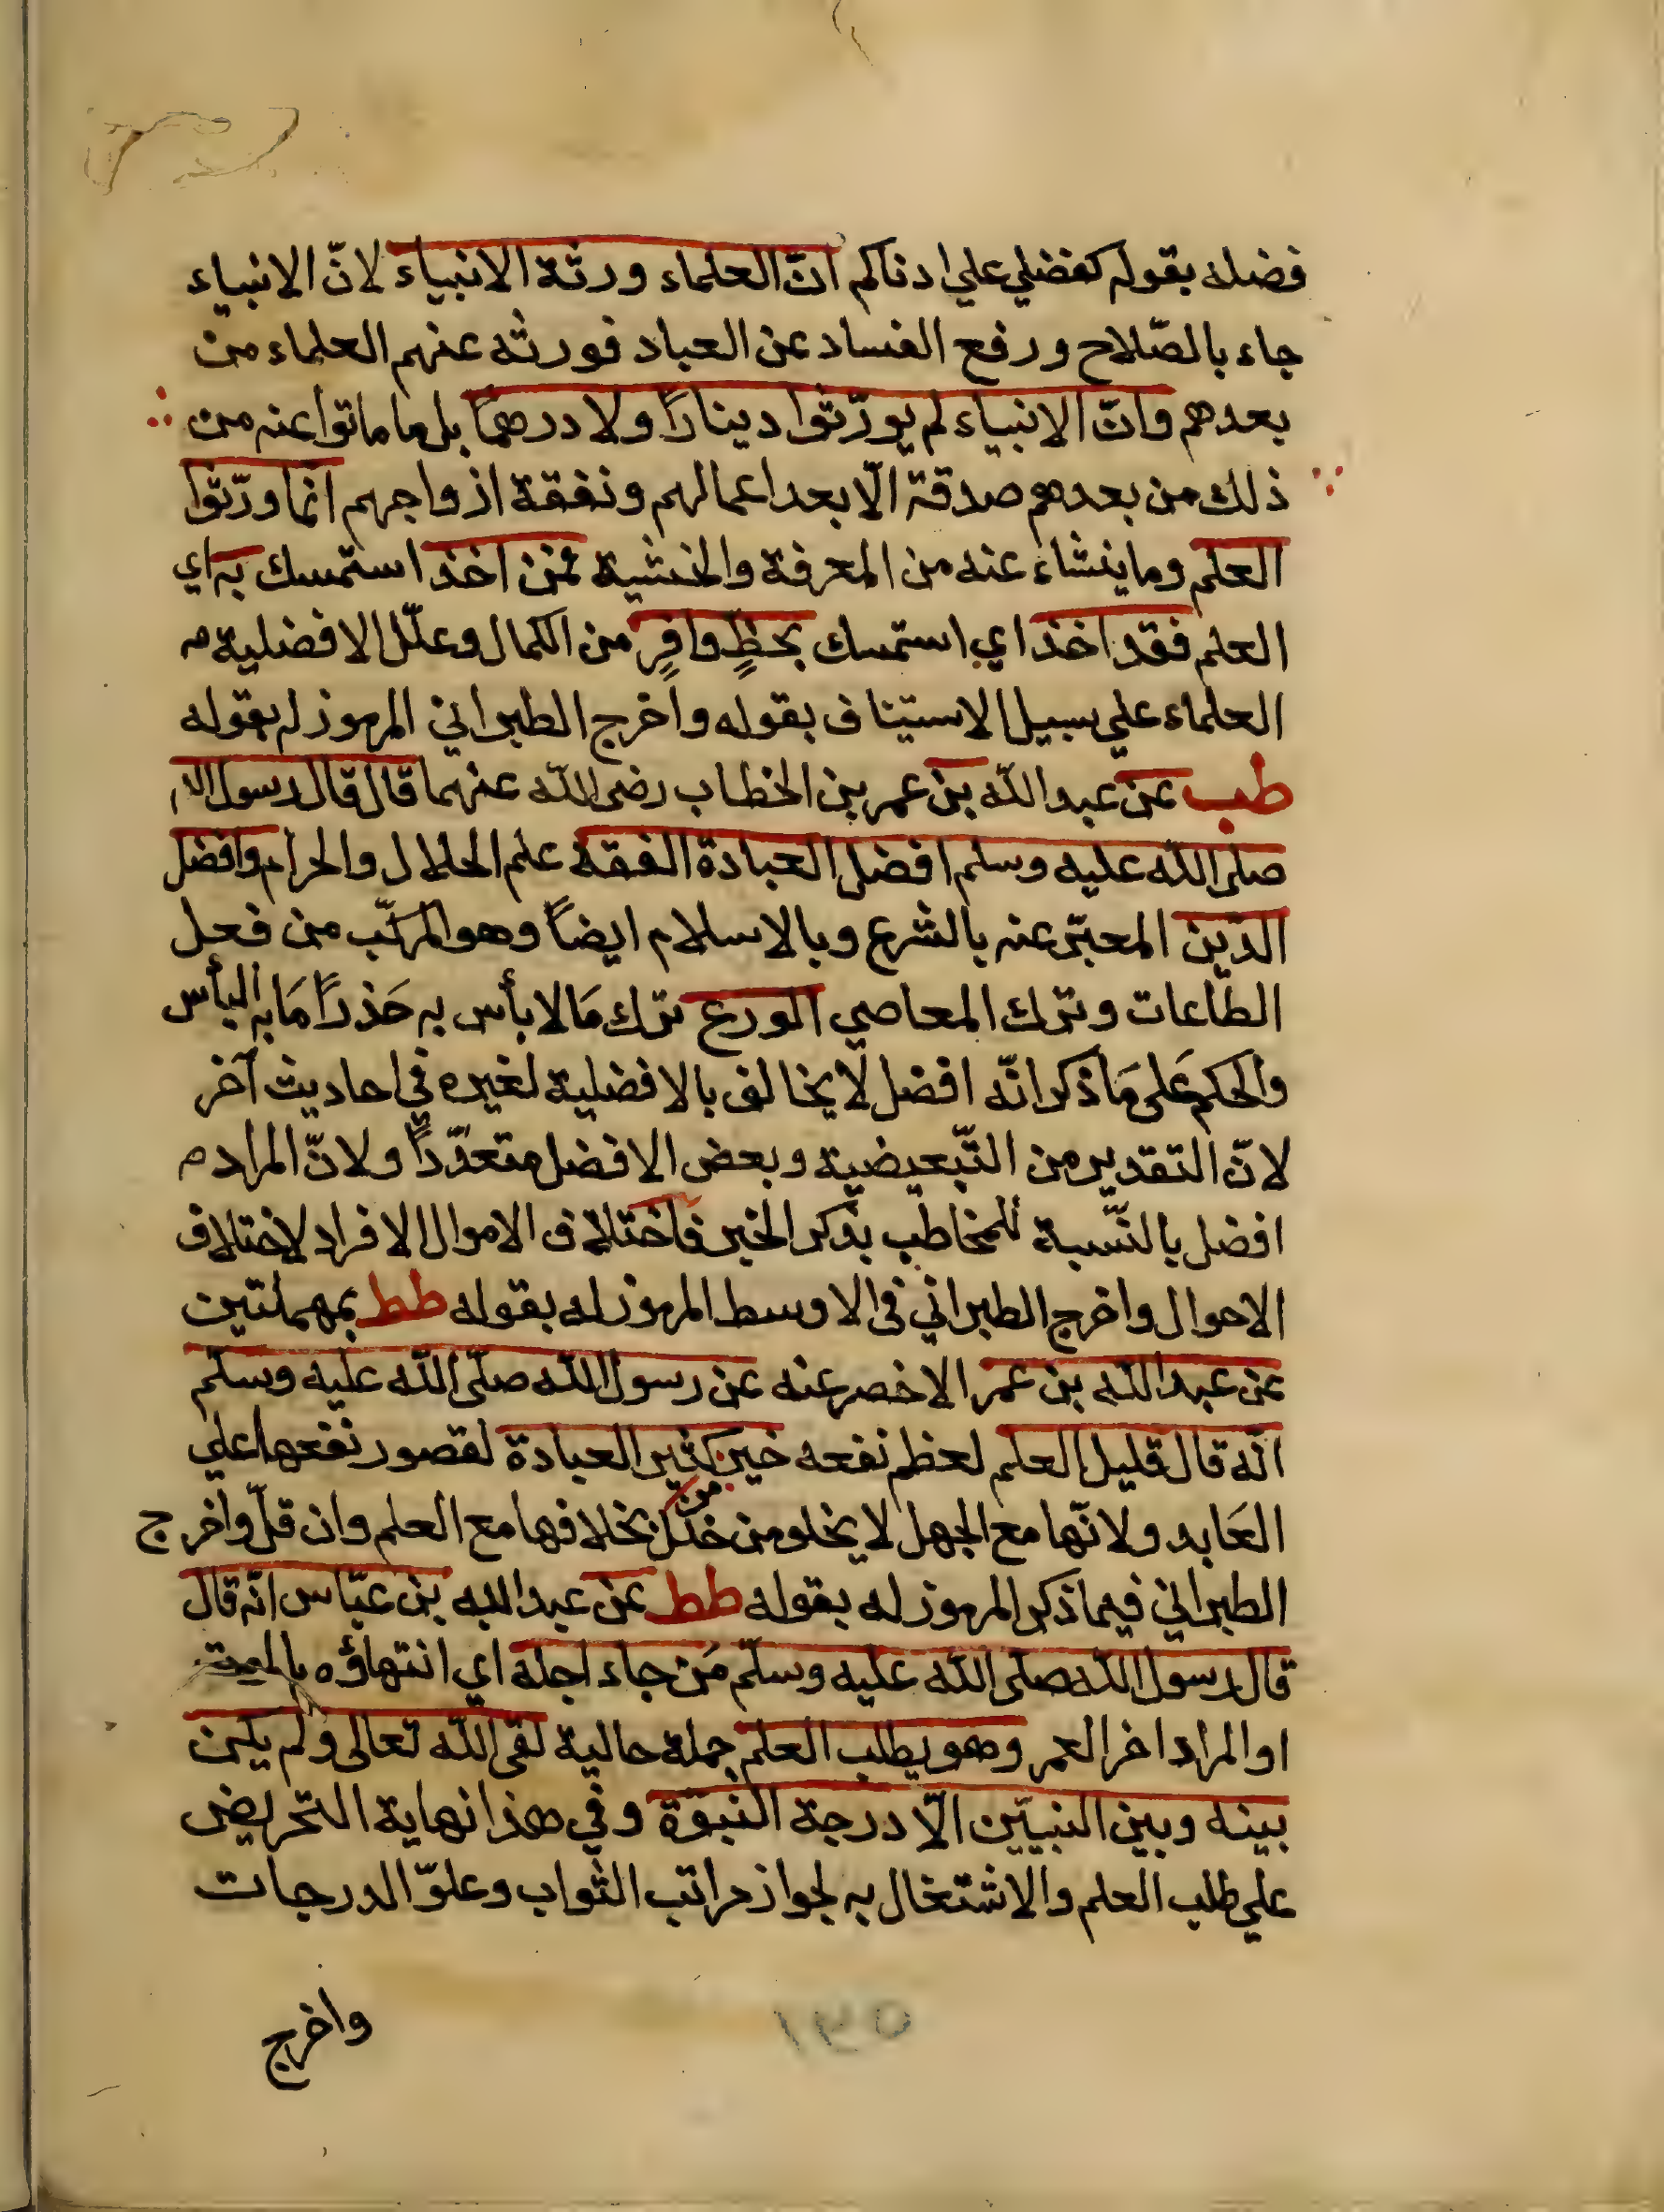 فضله بقوله كفضلي علي ادناكم انّ العلماء ورثة الانبياء لانّ الانبياء
جاء بالصّلاح ورفع الفساد عن العباد فورثه عنهم العلماء من
بعدهم وانّ الانبياء لم يورّثوا دينارًا ولا درهمًا بل ما ماتوا عنه من
ذلك من بعدهم صدقة الّا بعد اعمالهم ونفقة ازواجهم انما ورّثوا
العلم وما ينشاء عنه من المعرفة والخشية فمن اخذ استمسك به اي
العلم فقد اخذ اي استمسك بحظٍ وافرٍ من الكمال وعلّل الافضلية م
العلماء علي سبيل الاستيناف بقوله واخرج الطبراني المرموز له بقوله
طب عن عبد الله بن عمر بن الخطاب رضى الله عنهما قال قال رسول الله
صلى الله عليه وسلم افضل العبادة الفقه علم الحلال والحرام وافضل
الدّين المعبّر عنه بالشرع وبالاسلام ايضًا وهو المركّب من فعل
الطّاعات وترك المعاصي الورع ترك مَا لا بأس به حَذرًا مَا به البأس
والحكم عَلى مَا ذكر انّه افضل لا يخالف بالافضلية لغيره في احاديث آخر
لانّ التقدير من التّبعيضية وبعض الافضل متعدّدًا ولانّ المراد م
افضل بالنّسبة للمخاطب بذكر الخير فاختلاف الاموال الافراد لاختلاف
الاحوال واخرج الطبراني فى الاوسط المرموز له بقوله طط بمهملتين
عن عبد الله بن عمر الاخصر عنه عن رسول الله صلّى الله عليه وسلّم
انّه قال قليل العلم لعظم نفعه خير من كثير العبادة لقصور نفعها علي
العَابد ولانّها مع الجهل لا يخلو من خلل بخلافها مع العلم وان قلّ واخرج
الطبراني فيما ذكر المرموز له بقوله طط عن عبد الله بن عبّاس انّه قال
قال رسول الله صلى الله عليه وسلّم مَن جاء اجله اي انتهاؤه بالموت
او المراد اخر العمر وهو يطلب العلم جملة حالية لقى الله تعالى ولم يكن
بينه وبين النبيّين الّا درجة النبوّة وفي هذا نهاية التحريض
علي طلب العلم والاشتغال به لجواز مراتب الثواب وعلوّ الدرجات
واخرج